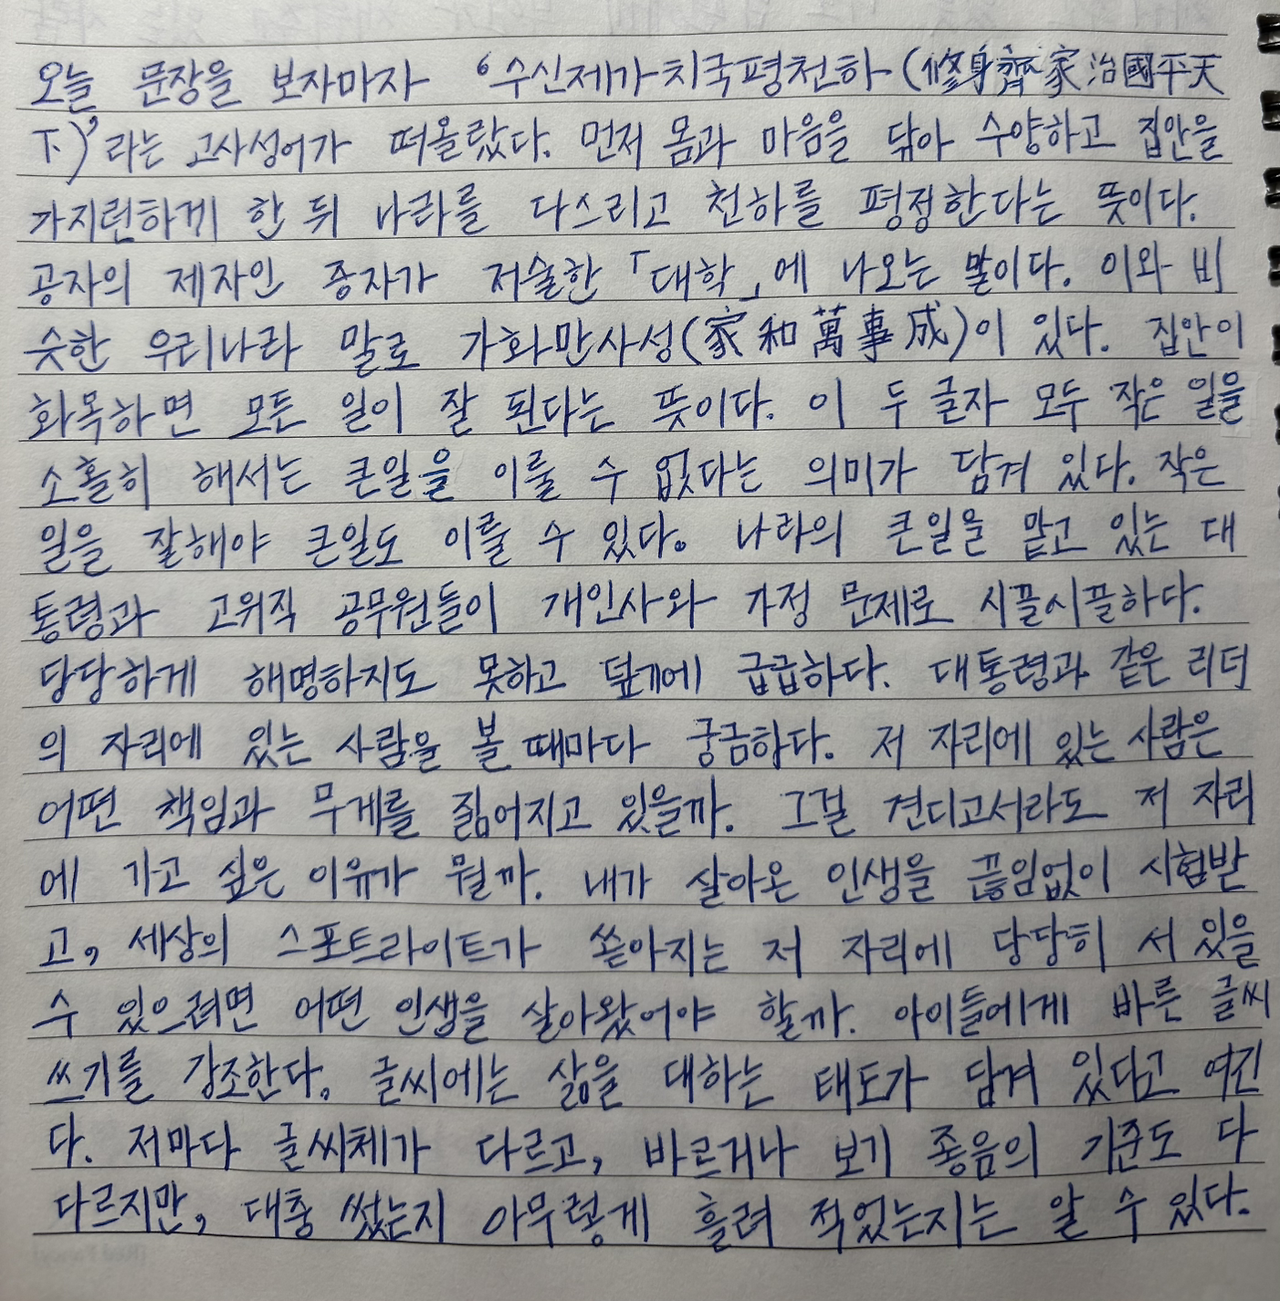 오늘 문장을 보자마자 '수신제가치국평천하(修身齊家治國平天
下)'라는 고사성어가 떠올랐다. 먼저 몸과 마음을 닦아 수양하고 집안을
가지런하게 한 뒤 나라를 다스리고 천하를 평정한다는 뜻이다.
공자의 제자인 증자가 저술한 「대학」에 나오는 말이다. 이와 비
슷한 우리나라 말로 가화만사성(家和萬事成)이 있다. 집안이
화목하면 모든 일이 잘 된다는 뜻이다. 이 두 글자 모두 작은 일을
소홀히 해서는 큰일을 이룰 수 없다는 의미가 담겨 있다. 작은
일을 잘해야 큰일도 이룰 수 있다. 나라의 큰일을 맡고 있는 대
통령과 고위직 공무원들이 개인사와 가정 문제로 시끌시끌하다.
당당하게 해명하지도 못하고 덮기에 급급하다. 대통령과 같은 리더
의 자리에 있는 사람을 볼 때마다 궁금하다. 저 자리에 있는 사람은
어떤 책임과 무게를 짊어지고 있을까. 그걸 견디고서라도 저 자리
에 가고 싶은 이유가 뭘까. 내가 살아온 인생을 끊임없이 시험받
고, 세상의 스포트라이트가 쏟아지는 저 자리에 당당히 서 있을
수 있으려면 어떤 인생을 살아왔어야 할까. 아이들에게 바른 글씨
쓰기를 강조한다. 글씨에는 삶을 대하는 태도가 담겨 있다고 여긴
다. 저마다 글씨체가 다르고, 바르거나 보기 좋음의 기준도 다
다르지만, 대충 썼는지 아무렇게 흘려 적었는지는 알 수 있다.